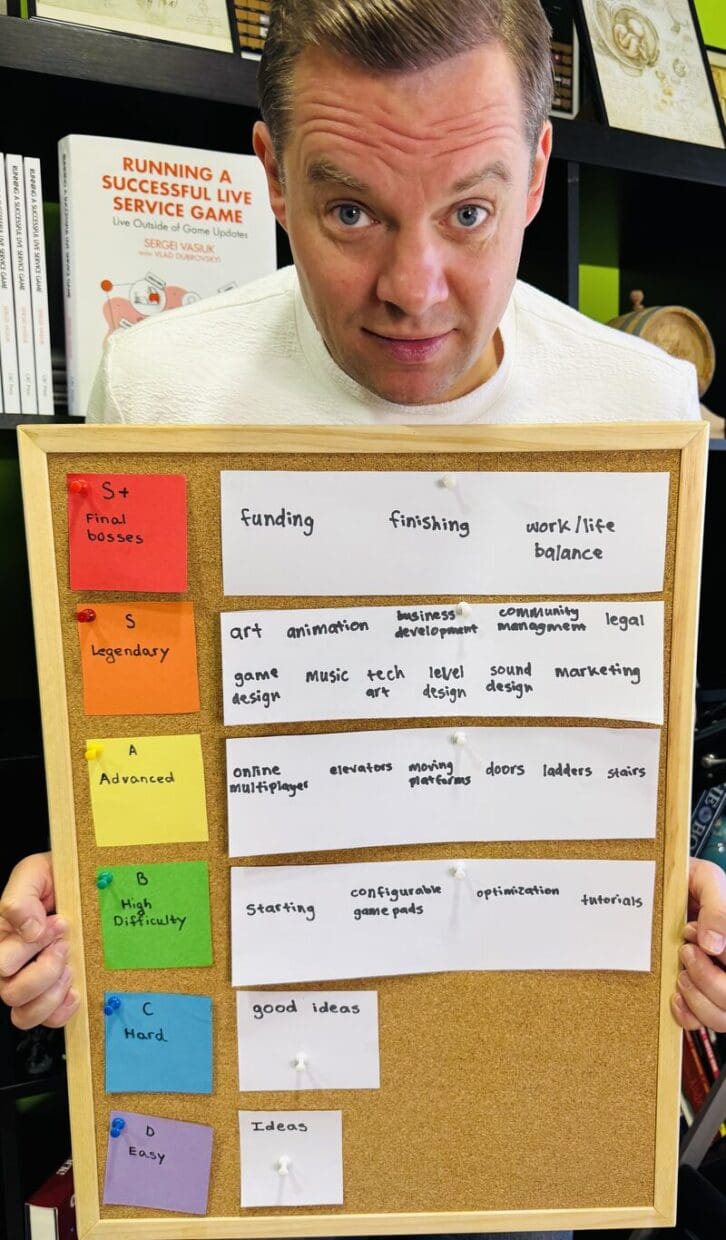 RUNNING A
SUCCESSFUL LIVE
SERVICE GAME
Live Outside of Game Updates
SERGEI VASIUK
WITH VLAD DUBROVSKYI
RUNNING A SUCCESSFUL LIVE SERVICE GAME
RUNNING A SUCCESSFUL LIVE SERVICE GAME
S+
Final
bosses
funding finishing work/life
balance
S
Legendary
art animation business
development community
managment legal
game
design music tech
art level
design sound
design marketing
A
Advanced
online
multiplayer elevators moving
platforms doors ladders stairs
B
High
Difficulty
Starting configurable
game pads optimization tutorials
C
Hard
good ideas
D
Easy
Ideas